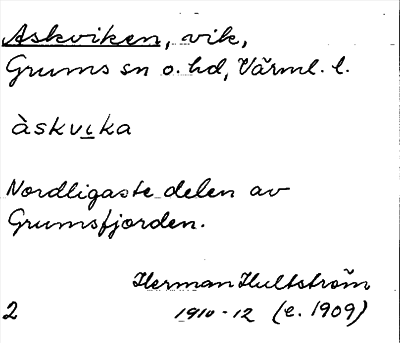 Askviken, vik,
Grums sn o. hd, Värml. l.
àskvıka
Nordligaste delen av
Grumsfjorden.
Herman Hultström
2 1910-12 (e. 1909)